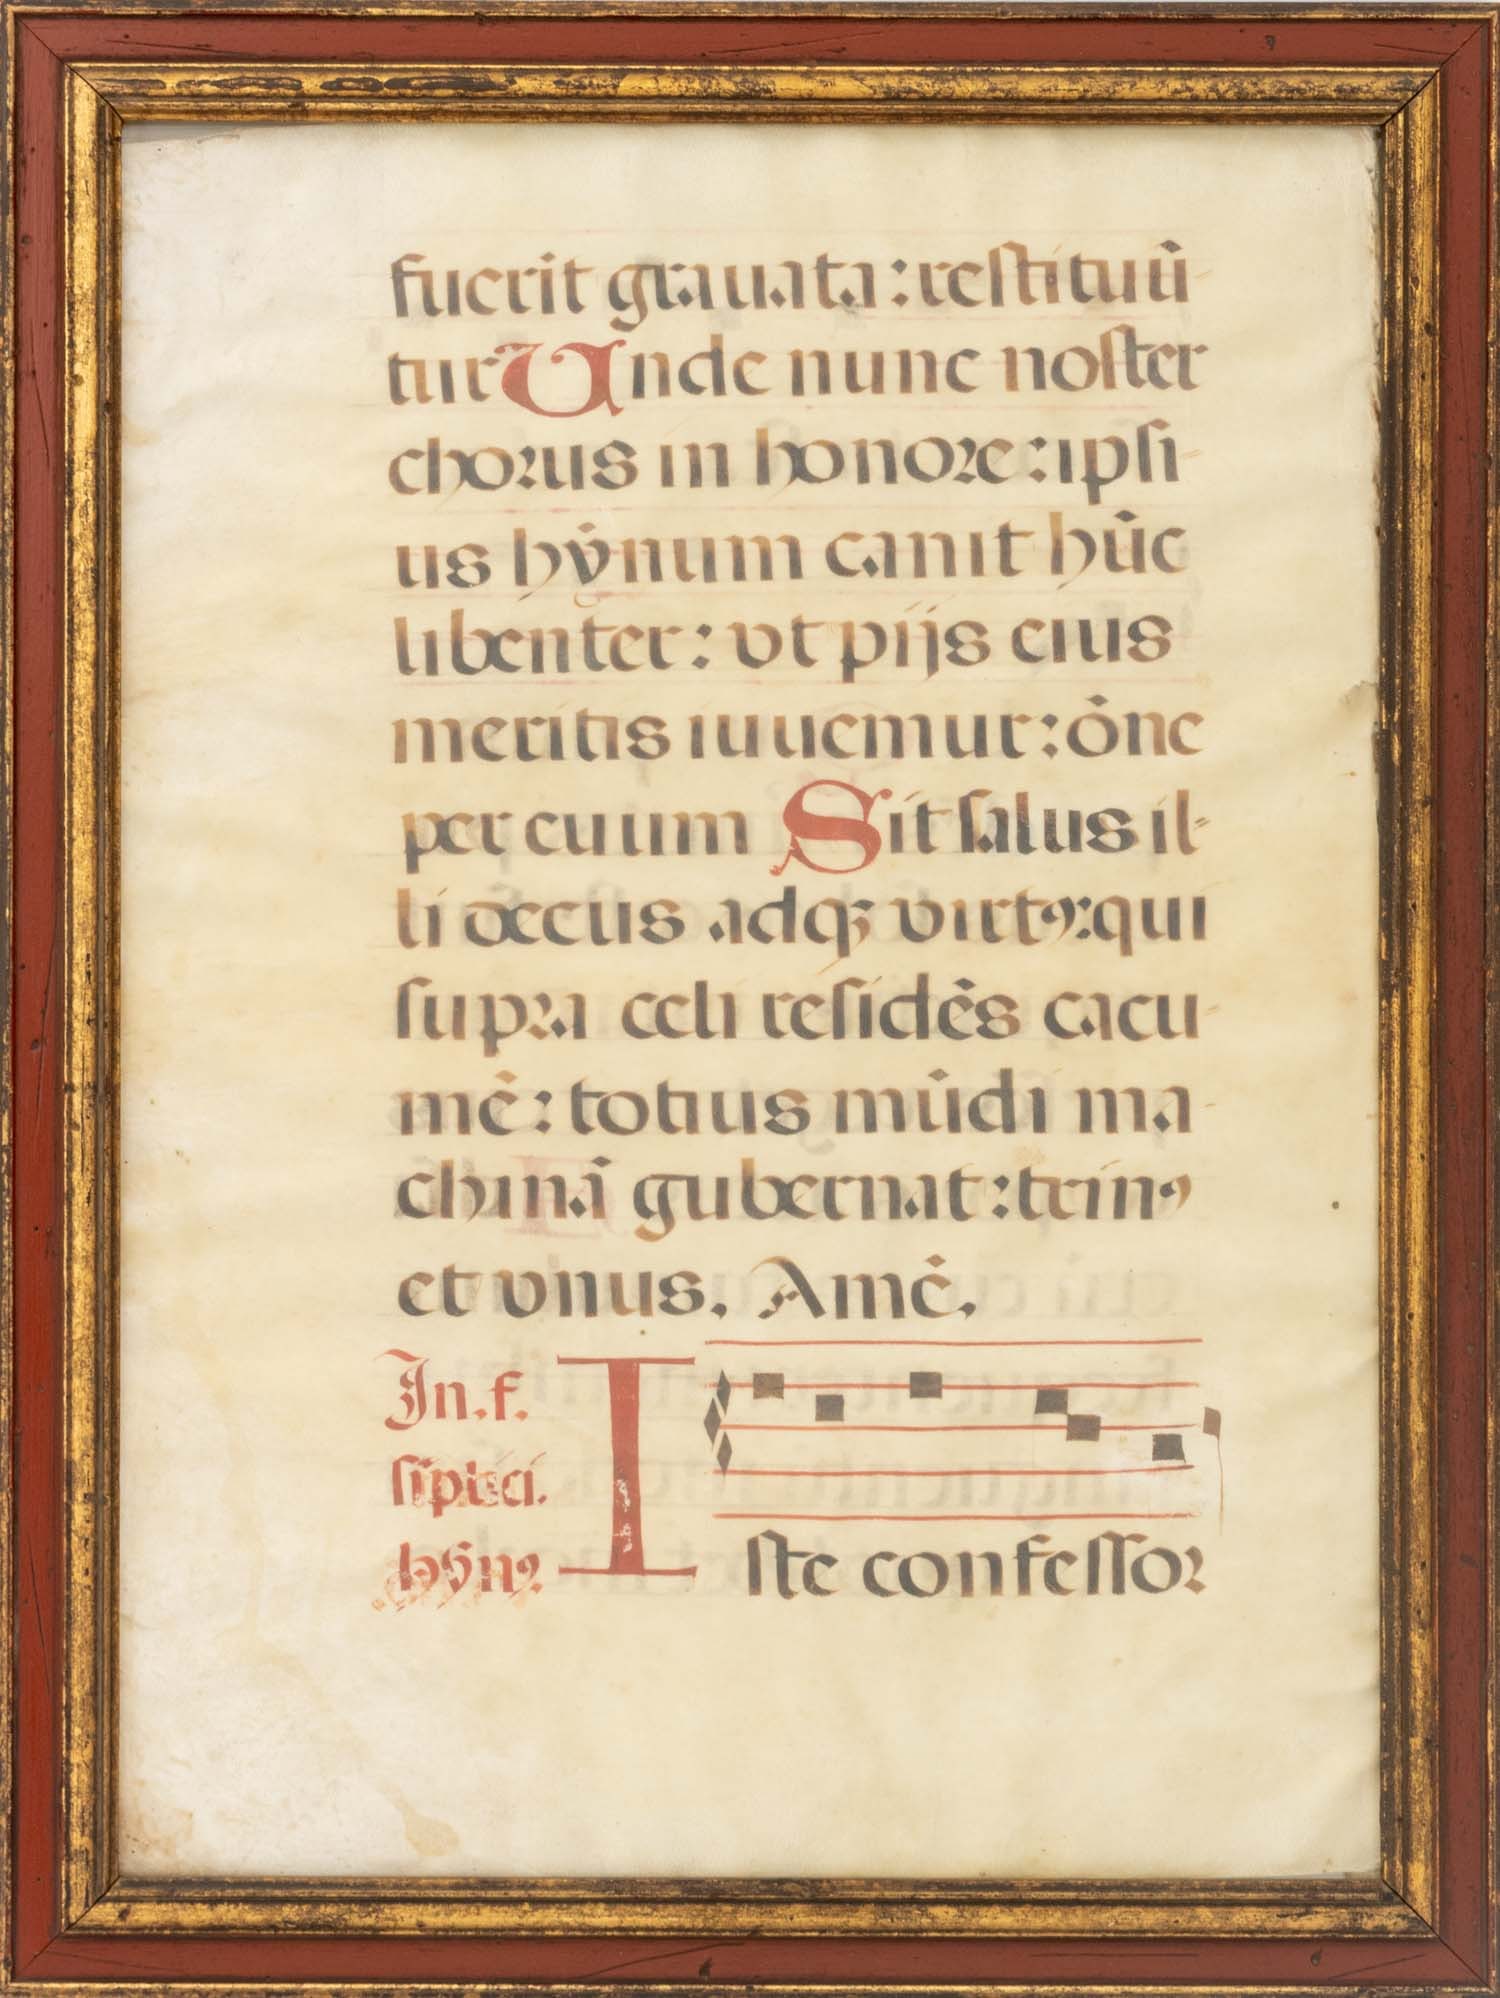 fuerit grauata : restituũ
tur Unde nunc noster
chorus in honore : ipsi
us hỹnum canit hũc
libenter : vt pijs eius
meritis iuuemur : õne
per euum Sit salus il-
li decus adqꝫ virtꝰ : qui
supra celi residẽs cacu
mẽ : totius mũdi ma
chinã gubernat : trinꝰ
et vnus. Amẽ.
In. f.
siplici.
hỹnꝰ
Iste confessor